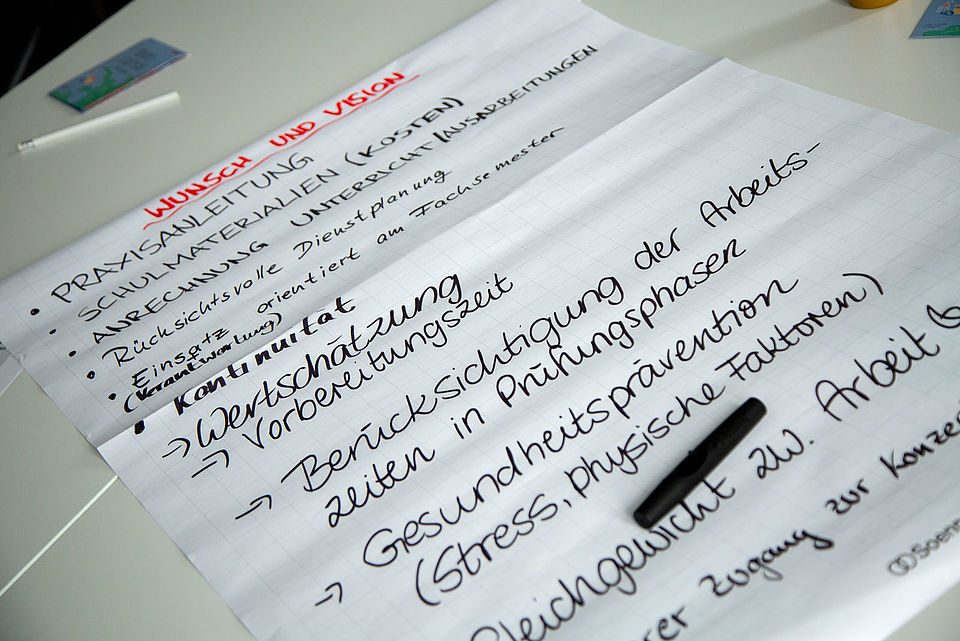 WUNSCH UND VISION
• PRAXISANLEITUNG
• SCHULMATERIALIEN (KOSTEN)
• ANRECHNUNG UNTERRICHT/AUSARBEITUNGEN
• Rücksichtsvolle Dienstplanung
• Einsatz orientiert am Fachsemester
(Verantwortung)
• Kontinuität
→ Wertschätzung
→ Vorbereitungszeit
→ Berücksichtigung der Arbeits-
zeiten in Prüfungsphasen
→ Gesundheitsprävention
(Stress, physische Faktoren)
Gleichgewicht zw. Arbeit
Zugang zur